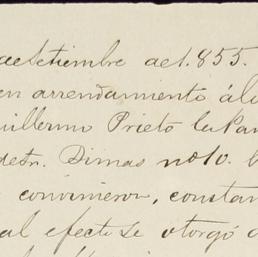 de Setiembre de 1.855.
en arrendamiento á
Guillermo Prieto la
de Sn. Dimas no 10.
convinieron, constan
al efecto se otorgó